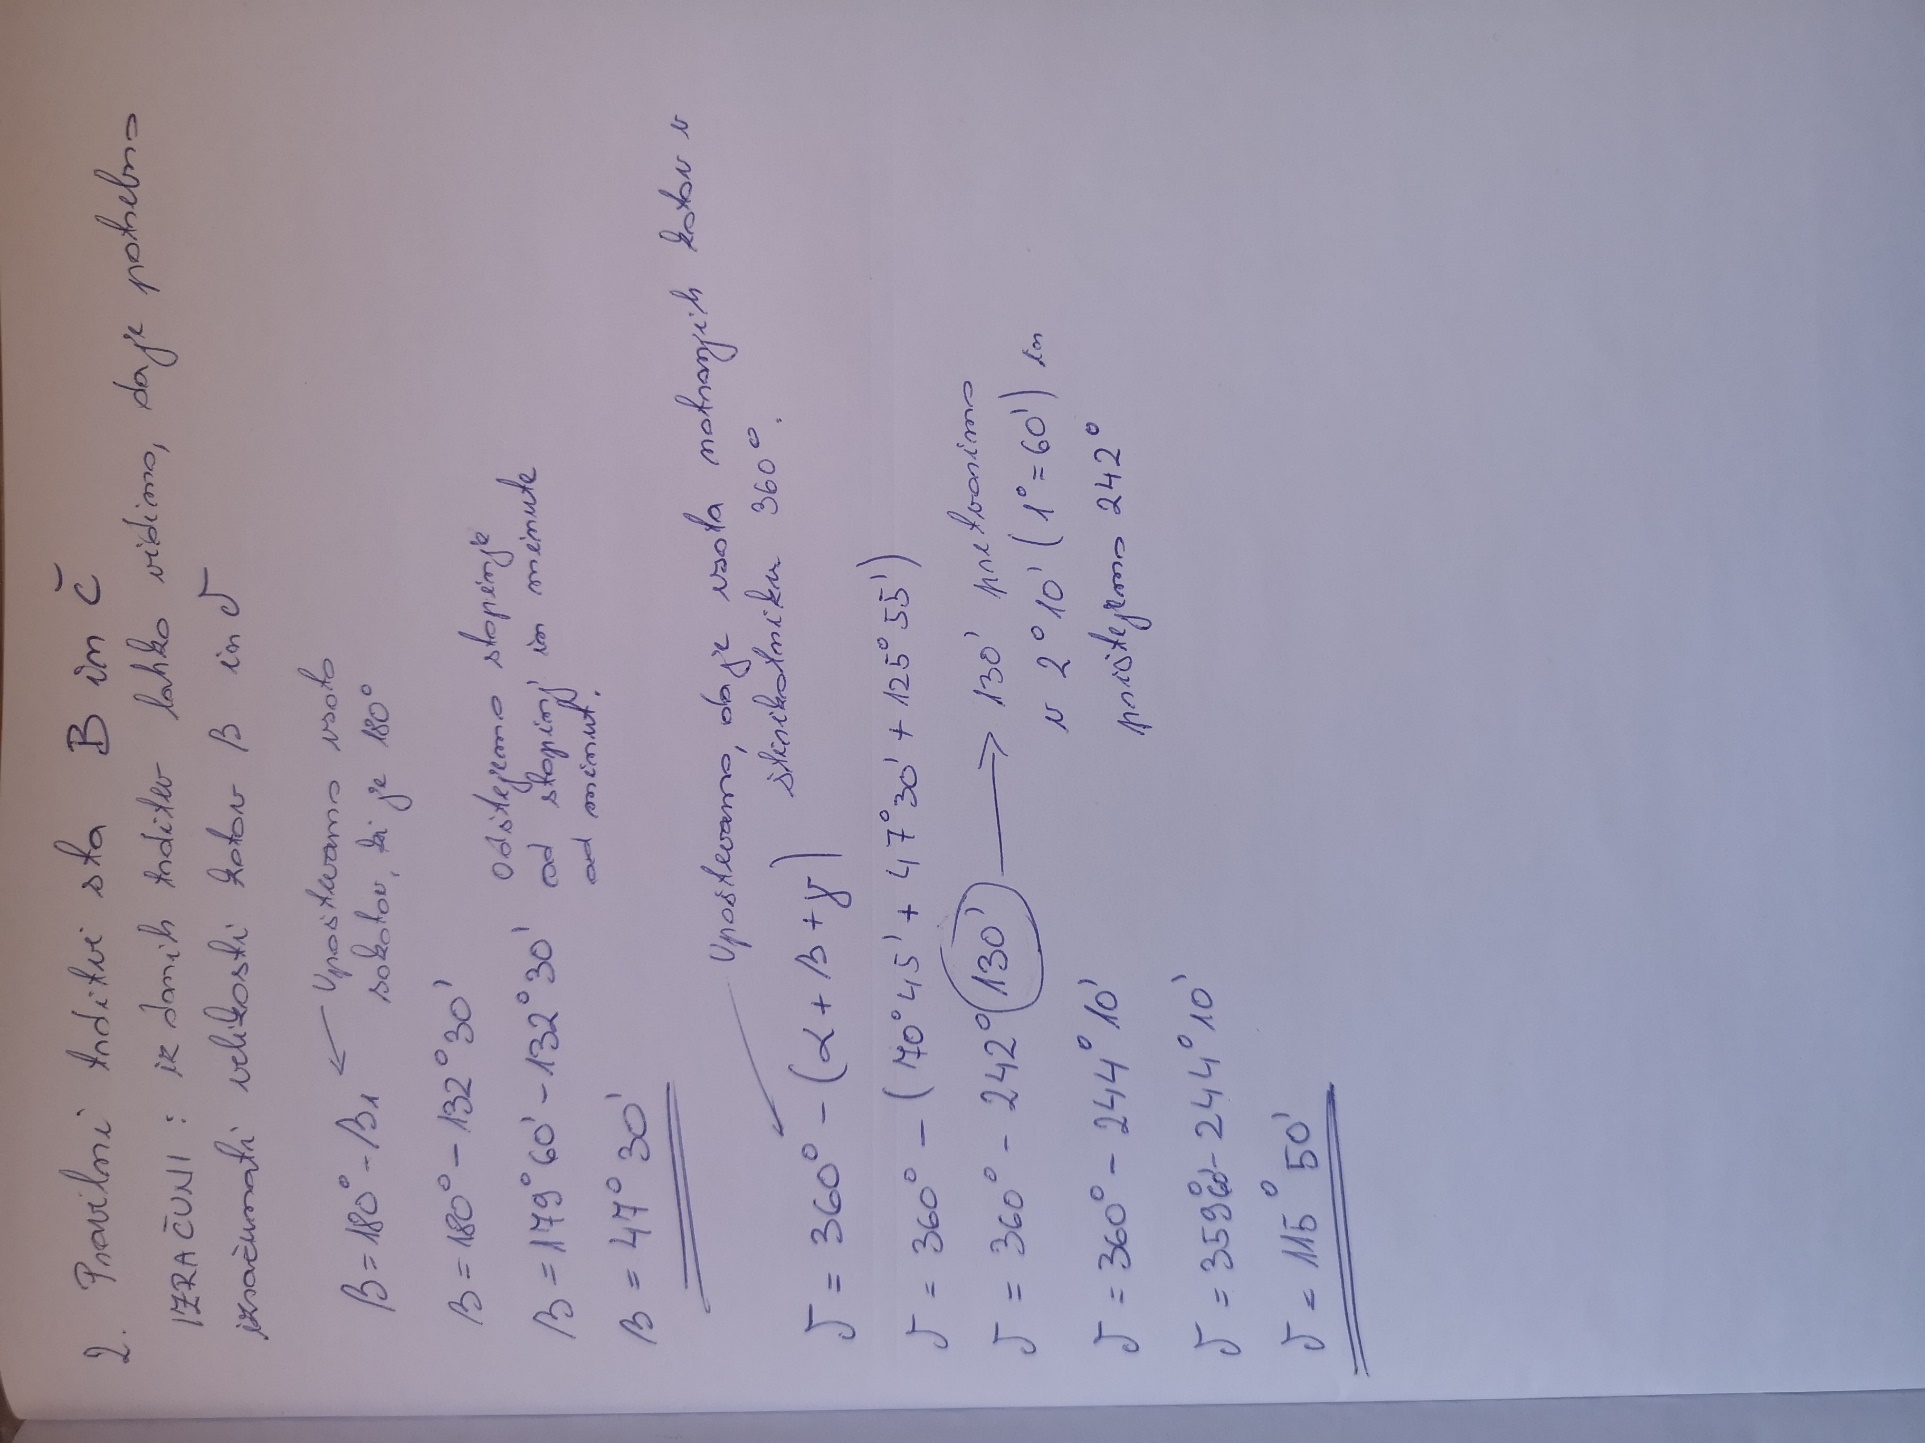 2. Pravilni trditvi sta B in Č
IZRAČUNI: iz danih trditev lahko vidimo, da je potrebno
izračunati velikosti kotov β in δ
β = 180° - β₁ ← Upoštevamo vsoto
sokotov, ki je 180°
β = 180° - 132° 30'
β = 179° 60' - 132° 30' Odštejemo stopinje
od stopinj in minute
od minut.
β = 47° 30'
Upoštevamo, da je vsota notranjih kotov v
štirikotniku 360°.
δ = 360° - (α + β + γ)
δ = 360° - (70° 45' + 47° 30' + 125° 55')
δ = 360° - 242° 130' → 130' pretvorimo
v 2° 10' (1° = 60') in
prištejemo 242°
δ = 360° - 244° 10'
δ = 359° 60' - 244° 10'
δ = 115° 50'